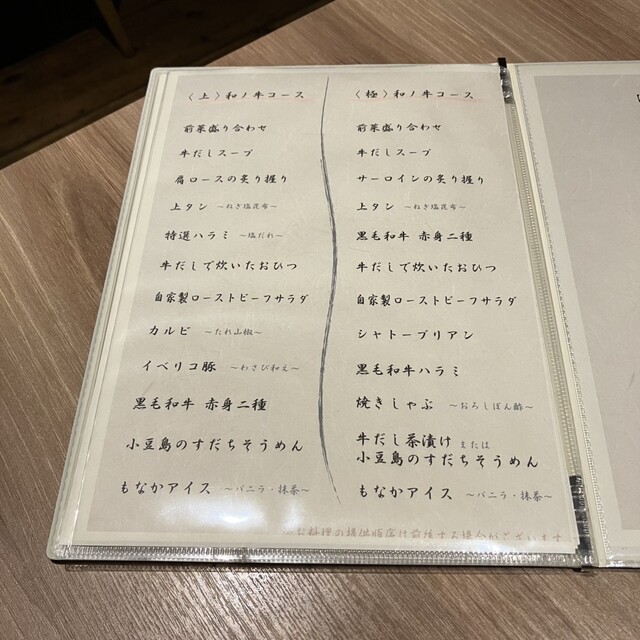 〈上〉和ノ牛コース
前菜盛り合わせ
牛だしスープ
肩ロースの炙り握り
上タン ～ねぎ塩昆布～
特選ハラミ ～塩だれ～
牛だしで炊いたおひつ
自家製ローストビーフサラダ
カルビ ～たれ山椒～
イベリコ豚 ～わさび和え～
黒毛和牛 赤身二種
小豆島のすだちそうめん
もなかアイス ～バニラ・抹茶～
〈極〉和ノ牛コース
前菜盛り合わせ
牛だしスープ
サーロインの炙り握り
上タン ～ねぎ塩昆布～
黒毛和牛 赤身二種
牛だしで炊いたおひつ
自家製ローストビーフサラダ
シャトーブリアン
黒毛和牛ハラミ
焼きしゃぶ ～おろしぽん酢～
牛だし茶漬け または
小豆島のすだちそうめん
もなかアイス ～バニラ・抹茶～
※お料理の提供順序は前後する場合がございます